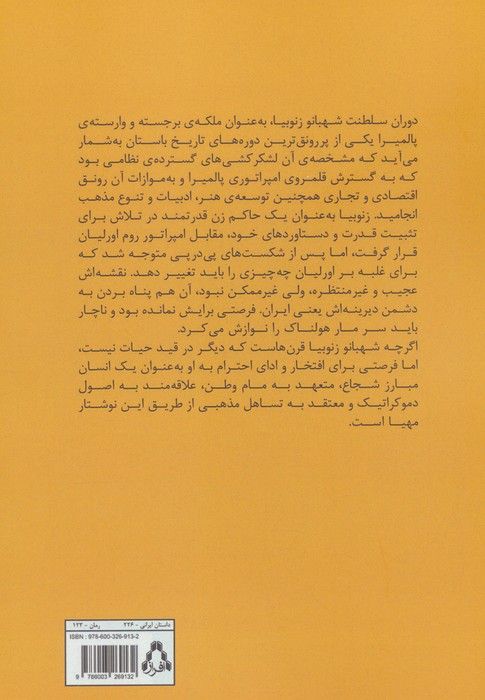 دوران سلطنت شهبانو زنوبیا، به‌عنوان ملکه‌ی برجسته و وارسته‌ی
پالمیرا یکی از پررونق‌ترین دوره‌های تاریخ باستان به‌شمار
می‌آید که مشخصه‌ی آن لشکرکشی‌های گسترده‌ی نظامی بود
که به گسترش قلمروی امپراتوری پالمیرا و به‌موازات آن رونق
اقتصادی و تجاری همچنین توسعه‌ی هنر، ادبیات و تنوع مذهب
انجامید. زنوبیا به‌عنوان یک حاکم زن قدرتمند در تلاش برای
تثبیت قدرت و دستاوردهای خود، مقابل امپراتور روم اورلیان
قرار گرفت، اما پس از شکست‌های پی‌درپی متوجه شد که
برای غلبه بر اورلیان چه‌چیزی را باید تغییر دهد. نقشه‌اش
عجیب و غیرمنتظره، ولی غیرممکن نبود، آن هم پناه بردن به
دشمن دیرینه‌اش یعنی ایران. فرصتی برایش نمانده بود و ناچار
باید سر مار هولناک را نوازش می‌کرد.
اگرچه شهبانو زنوبیا قرن‌هاست که دیگر در قید حیات نیست،
اما فرصتی برای افتخار و ادای احترام به او به‌عنوان یک انسان
مبارز شجاع، متعهد به مام وطن، علاقه‌مند به اصول
دموکراتیک و معتقد به تساهل مذهبی از طریق این نوشتار
مهیا است.
داستان ایرانی - ۲۲۶ رمان - ۱۲۳
ISBN : 978-600-326-913-2
9 786003 269132
افراز